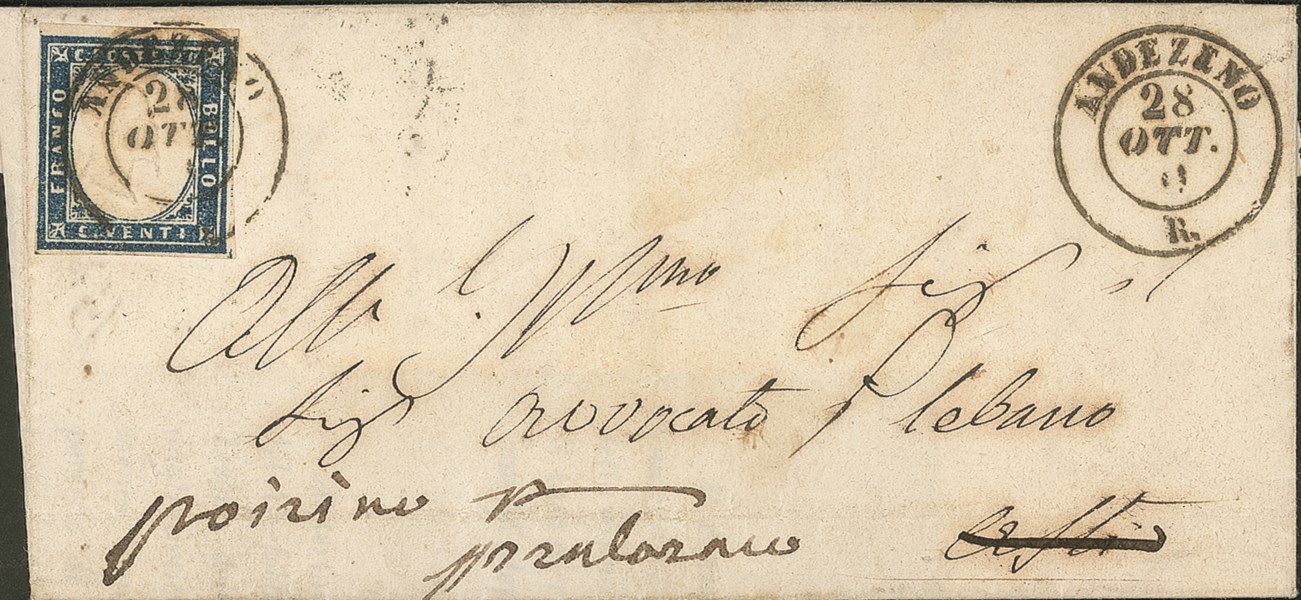 C.POSTE
FRANCO
BOLLO
C.VENTI
ANDEZENO
28
OTT.
ANDEZENO
28
OTT.
R.
All' Ill.mo Sig
Sig avvocato Plebano
poirino per
pralormo
Asti